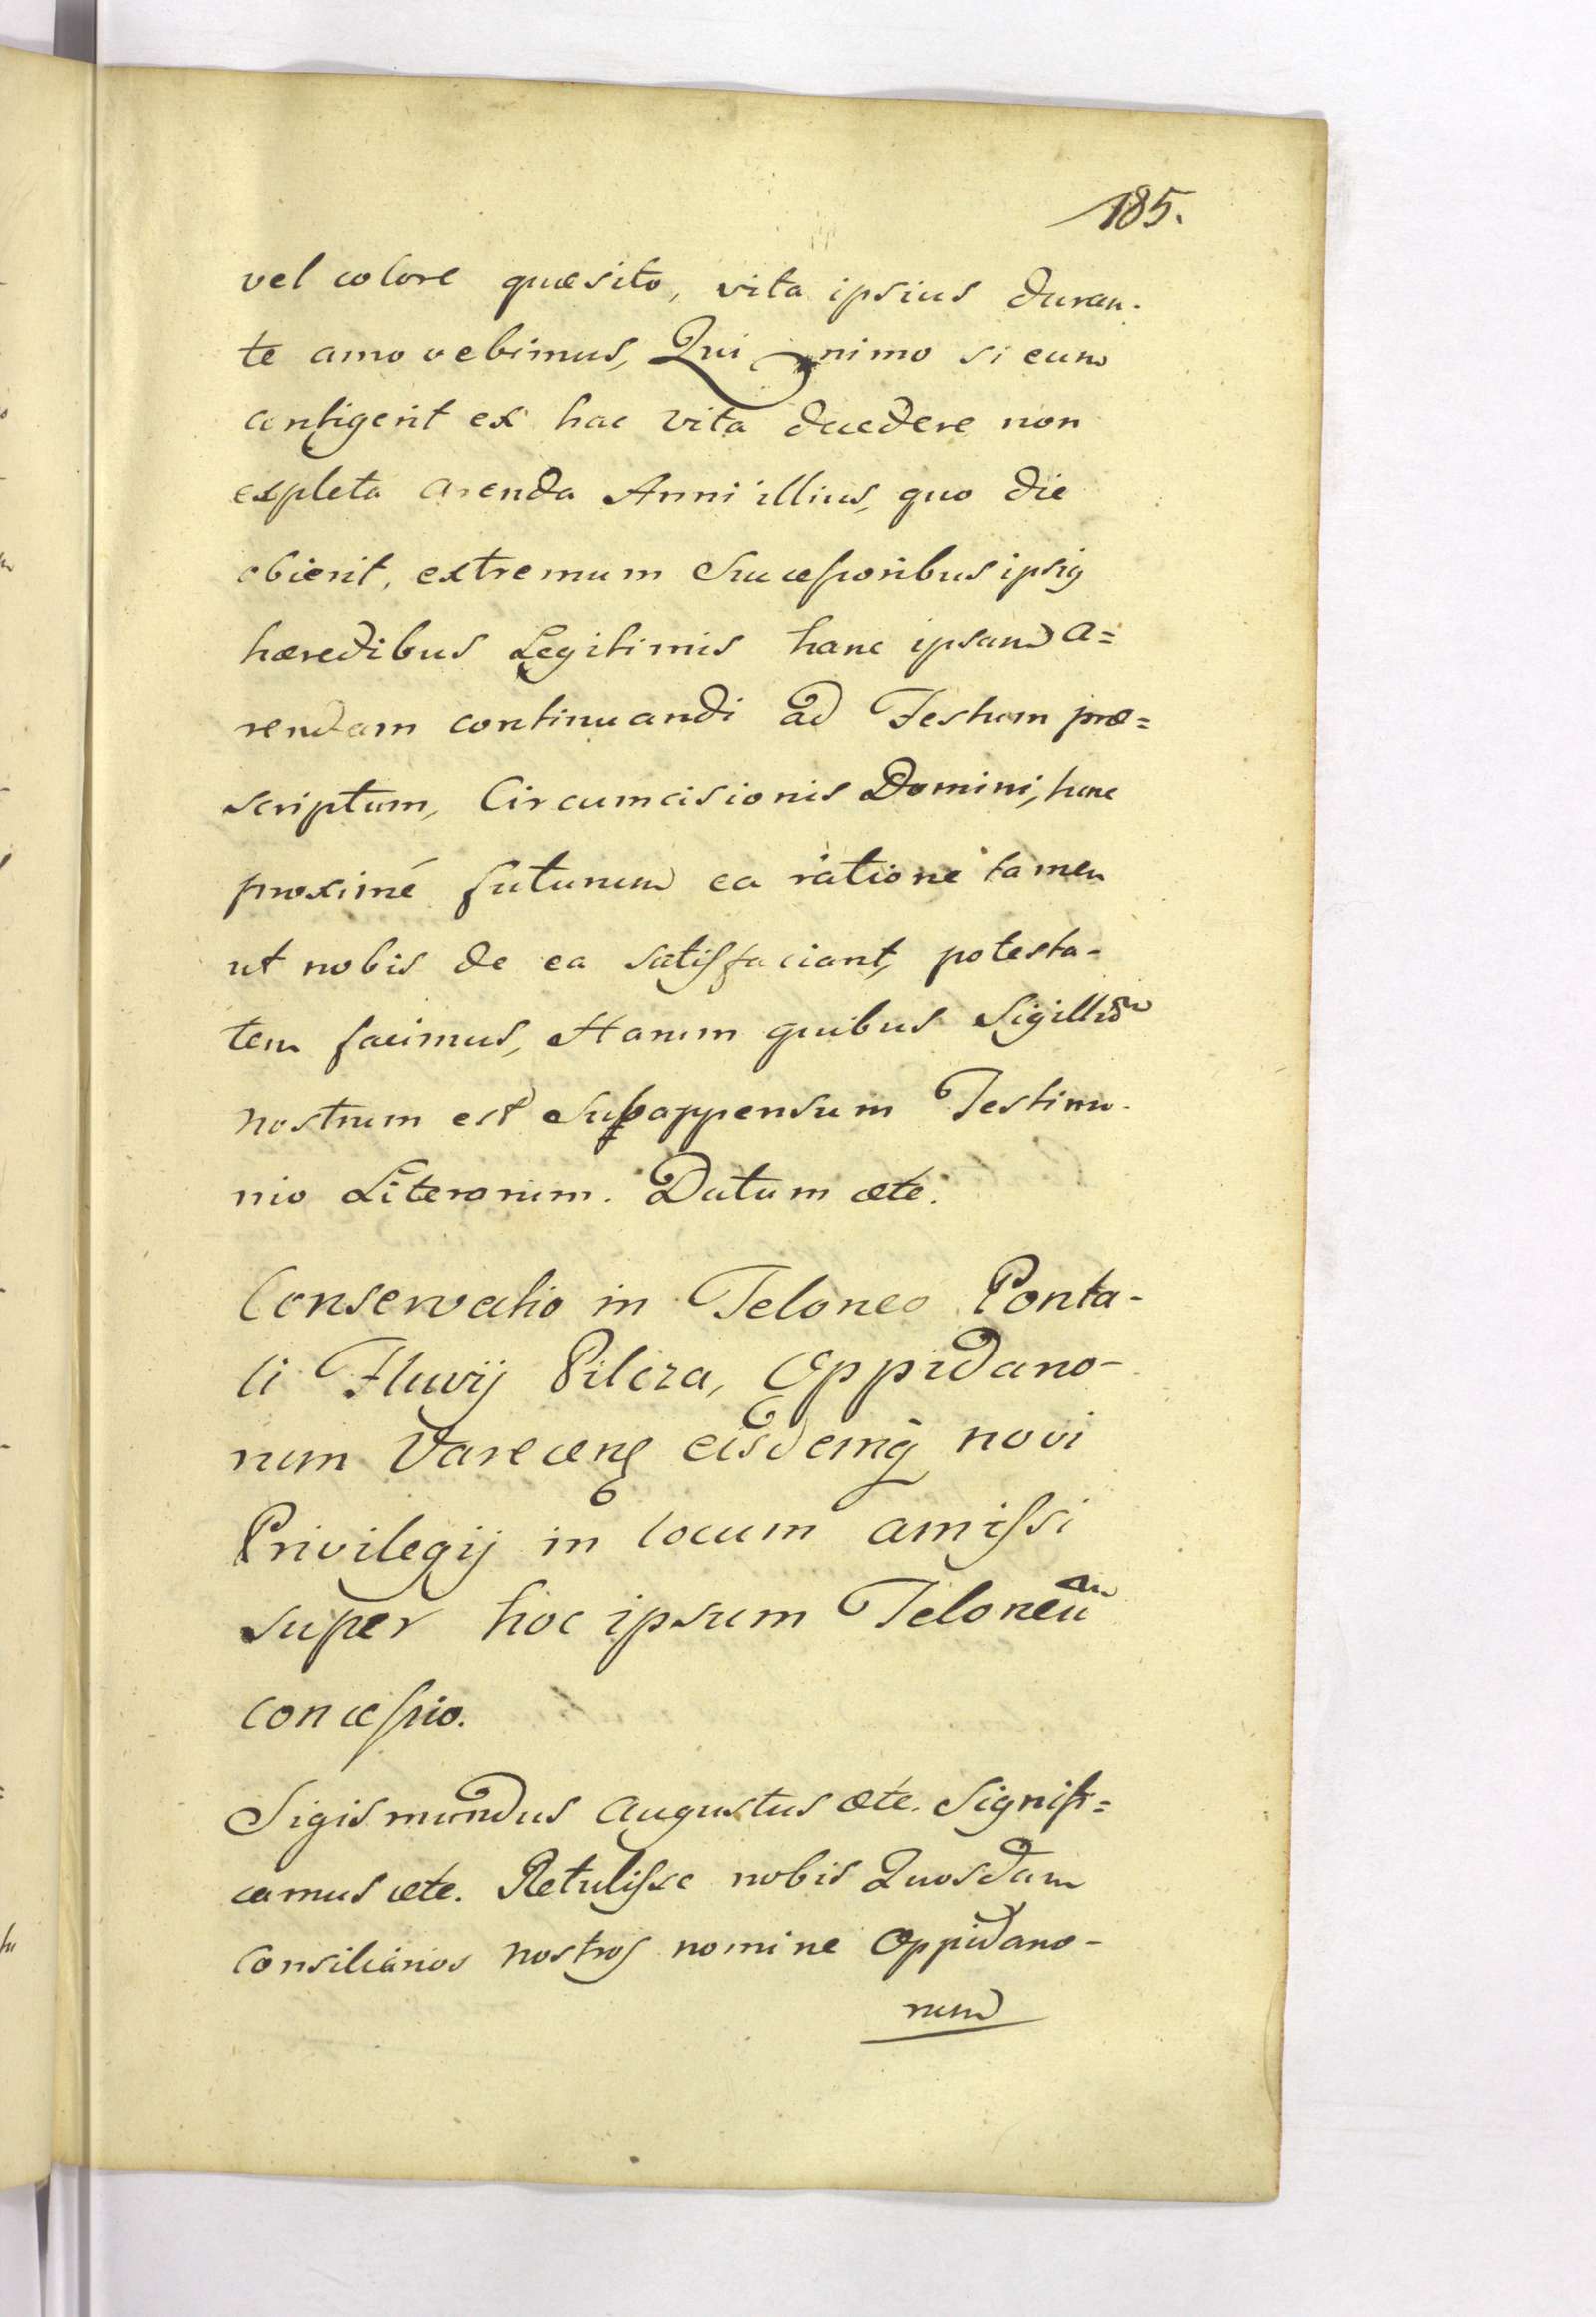 185.
vel colore quæsito, vita ipsius duran-
te amovebimus, Quinimo si eum
contigerit ex hac vita decedere non
expleta arenda Anni illius, quo die
obierit, extremum Successoribus ipsig
hæredibus Legitimis hanc ipsam a=
rendam continuandi ad Festum præ=
scriptum, Circumcisionis Domini, hunc
proximé futurum ea ratione tamen
ut nobis de ea satisfaciant, potesta-
tem facimus, Harum quibus Sigillum
nostrum est Subappensum Testimo-
nio Literarum. Datum ete.
Conservatio in Teloneo Ponta-
li Fluvij Pilcza, Oppidano-
rum Varecens eisdemq novi
Privilegij in locum amissi
super hoc ipsum Teloneum
concessio.
Sigismundus Augustus ete. Signifi=
camus ete. Retulisse nobis Quosdam
Consiliarios nostros nomine Oppidano-
rum